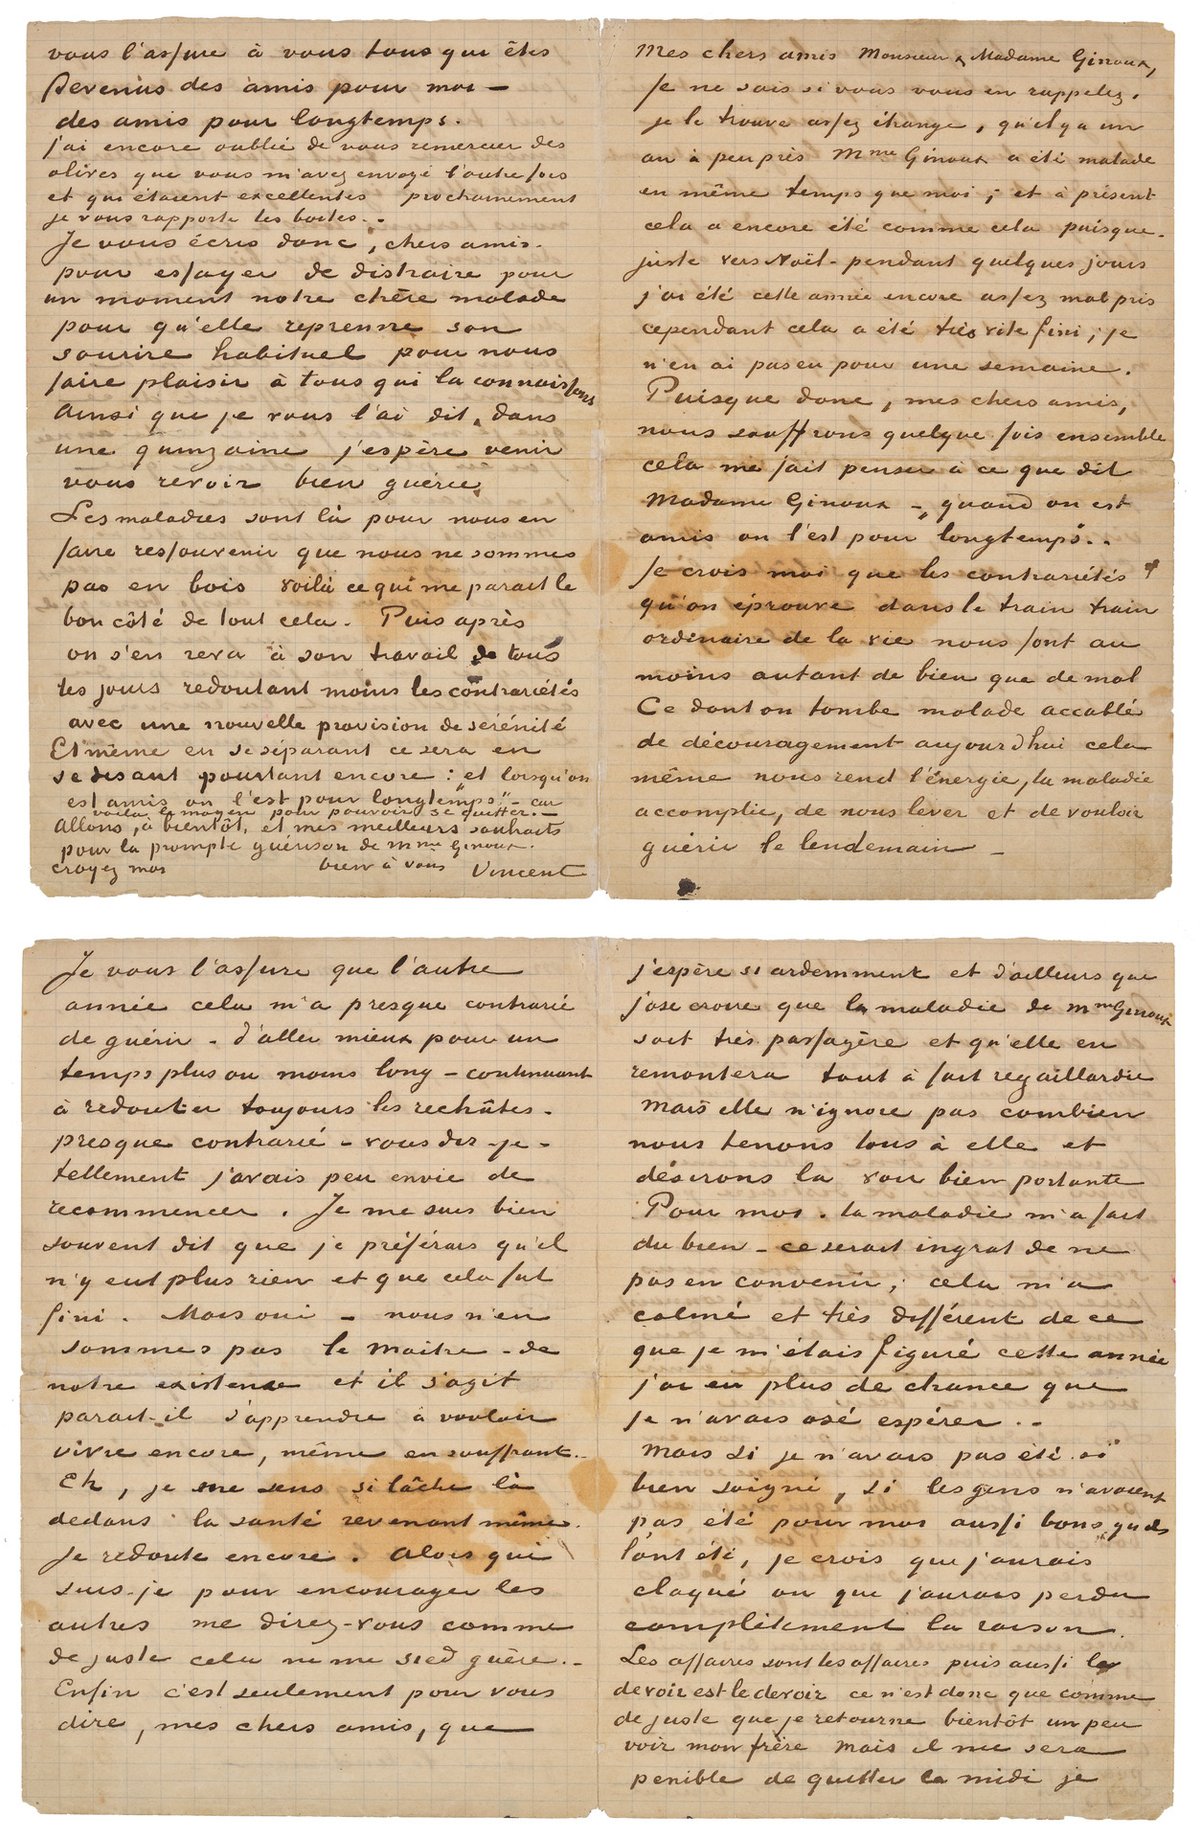 Mes chers amis Monsieur & Madame Ginoux,
Je ne sais si vous vous en rappelez.
je le trouve assez étrange, qu'il y a un
an à peu près Mme Ginoux a été malade
en même temps que moi; et à présent
cela a encore été comme cela puisque -
juste vers Noël - pendant quelques jours
j'ai été cette année encore assez mal pris
cependant cela a été très vite fini; je
n'en ai pas eu pour une semaine.
Puisque donc, mes chers amis,
nous souffrons quelque fois ensemble
cela me fait penser à ce que dit
Madame Ginoux -, quand on est
amis on l'est pour longtemps..
Je crois moi que les contrariétés
qu'on éprouve dans le train train
ordinaire de la vie nous font au
moins autant de bien que de mal
Ce dont on tombe malade accablé
de découragement aujourd'hui cela
même nous rend l'énergie, la maladie
accomplie, de nous lever et de vouloir
guérir le lendemain -
Je vous l'assure que l'autre
année cela m'a presque contrarié
de guérir - d'aller mieux pour un
temps plus ou moins long - continuant
à redouter toujours les rechûtes -
presque contrarié - vous dis-je -
tellement j'avais peu envie de
recommencer. Je me suis bien
souvent dit que je préférais qu'il
n'y eut plus rien et que cela fut
fini. Mais oui - nous n'en
sommes pas le maitre - de
notre existence et il s'agit
parait-il d'apprendre à vouloir
vivre encore, même en souffrant..
Eh, je me sens si lâche là
dedans la santé revenant même
Je redoute encore. Alors qui
suis-je pour encourager les
autres me direz-vous comme
de juste cela ne me sied guère.-
Enfin c'est seulement pour vous
dire, mes chers amis, que
j'espère si ardemment et d'ailleurs que
j'ose croire que la maladie de Mme Ginoux
soit très passagère et qu'elle en
remontera tout à fait regaillardie
Mais elle n'ignore pas combien
nous tenons tous à elle et
désirons la voir bien portante
Pour moi. la maladie m'a fait
du bien - ce serait ingrat de ne
pas en convenir; cela m'a
calmé et très différent de ce
que je m'étais figuré cette année
j'ai eu plus de chance que
je n'avais osé espérer..
Mais si je n'avais pas été si
bien soigné, si les gens n'avaient
pas été pour moi aussi bons qu'ils
l'ont été, je crois que j'aurais
claqué ou que j'aurais perdu
complètement la raison.
Les affaires sont les affaires puis aussi le
devoir est le devoir ce n'est donc que comme
de juste que je retourne bientôt un peu
voir mon frère Mais il me sera
penible de quitter le midi je
vous l'assure à vous tous qui êtes
Devenus des amis pour moi -
des amis pour longtemps.
J'ai encore oublié de vous remercier des
olives que vous m'avez envoyé l'autre fois
et qui étaient excellentes prochainement
je vous rapporte les boites..
Je vous écris donc, chers amis.
pour essayer de distraire pour
un moment notre chère malade
pour qu'elle reprenne son
sourire habituel pour nous
faire plaisir à tous qui la connaissons
Ainsi que je vous l'ai dit, dans
une quinzaine j'espère venir
vous revoir bien guérie.
Les maladies sont là pour nous en
faire ressouvenir que nous ne sommes
pas en bois voilà ce qui me parait le
bon côté de tout cela. Puis après
on s'en reva à son travail de tous
les jours redoutant moins les contrariétés
avec une nouvelle provision de sérénité
Et même en se séparant ce sera en
se disant pourtant encore: "et lorsqu'on
est amis on l'est pour longtemps" - car
voilà le moyen pour pouvoir se quitter.-
Allons, à bientôt, et mes meilleurs souhaits
pour la prompte guérison de Mme Ginoux.
croyez moi bien à vous Vincent